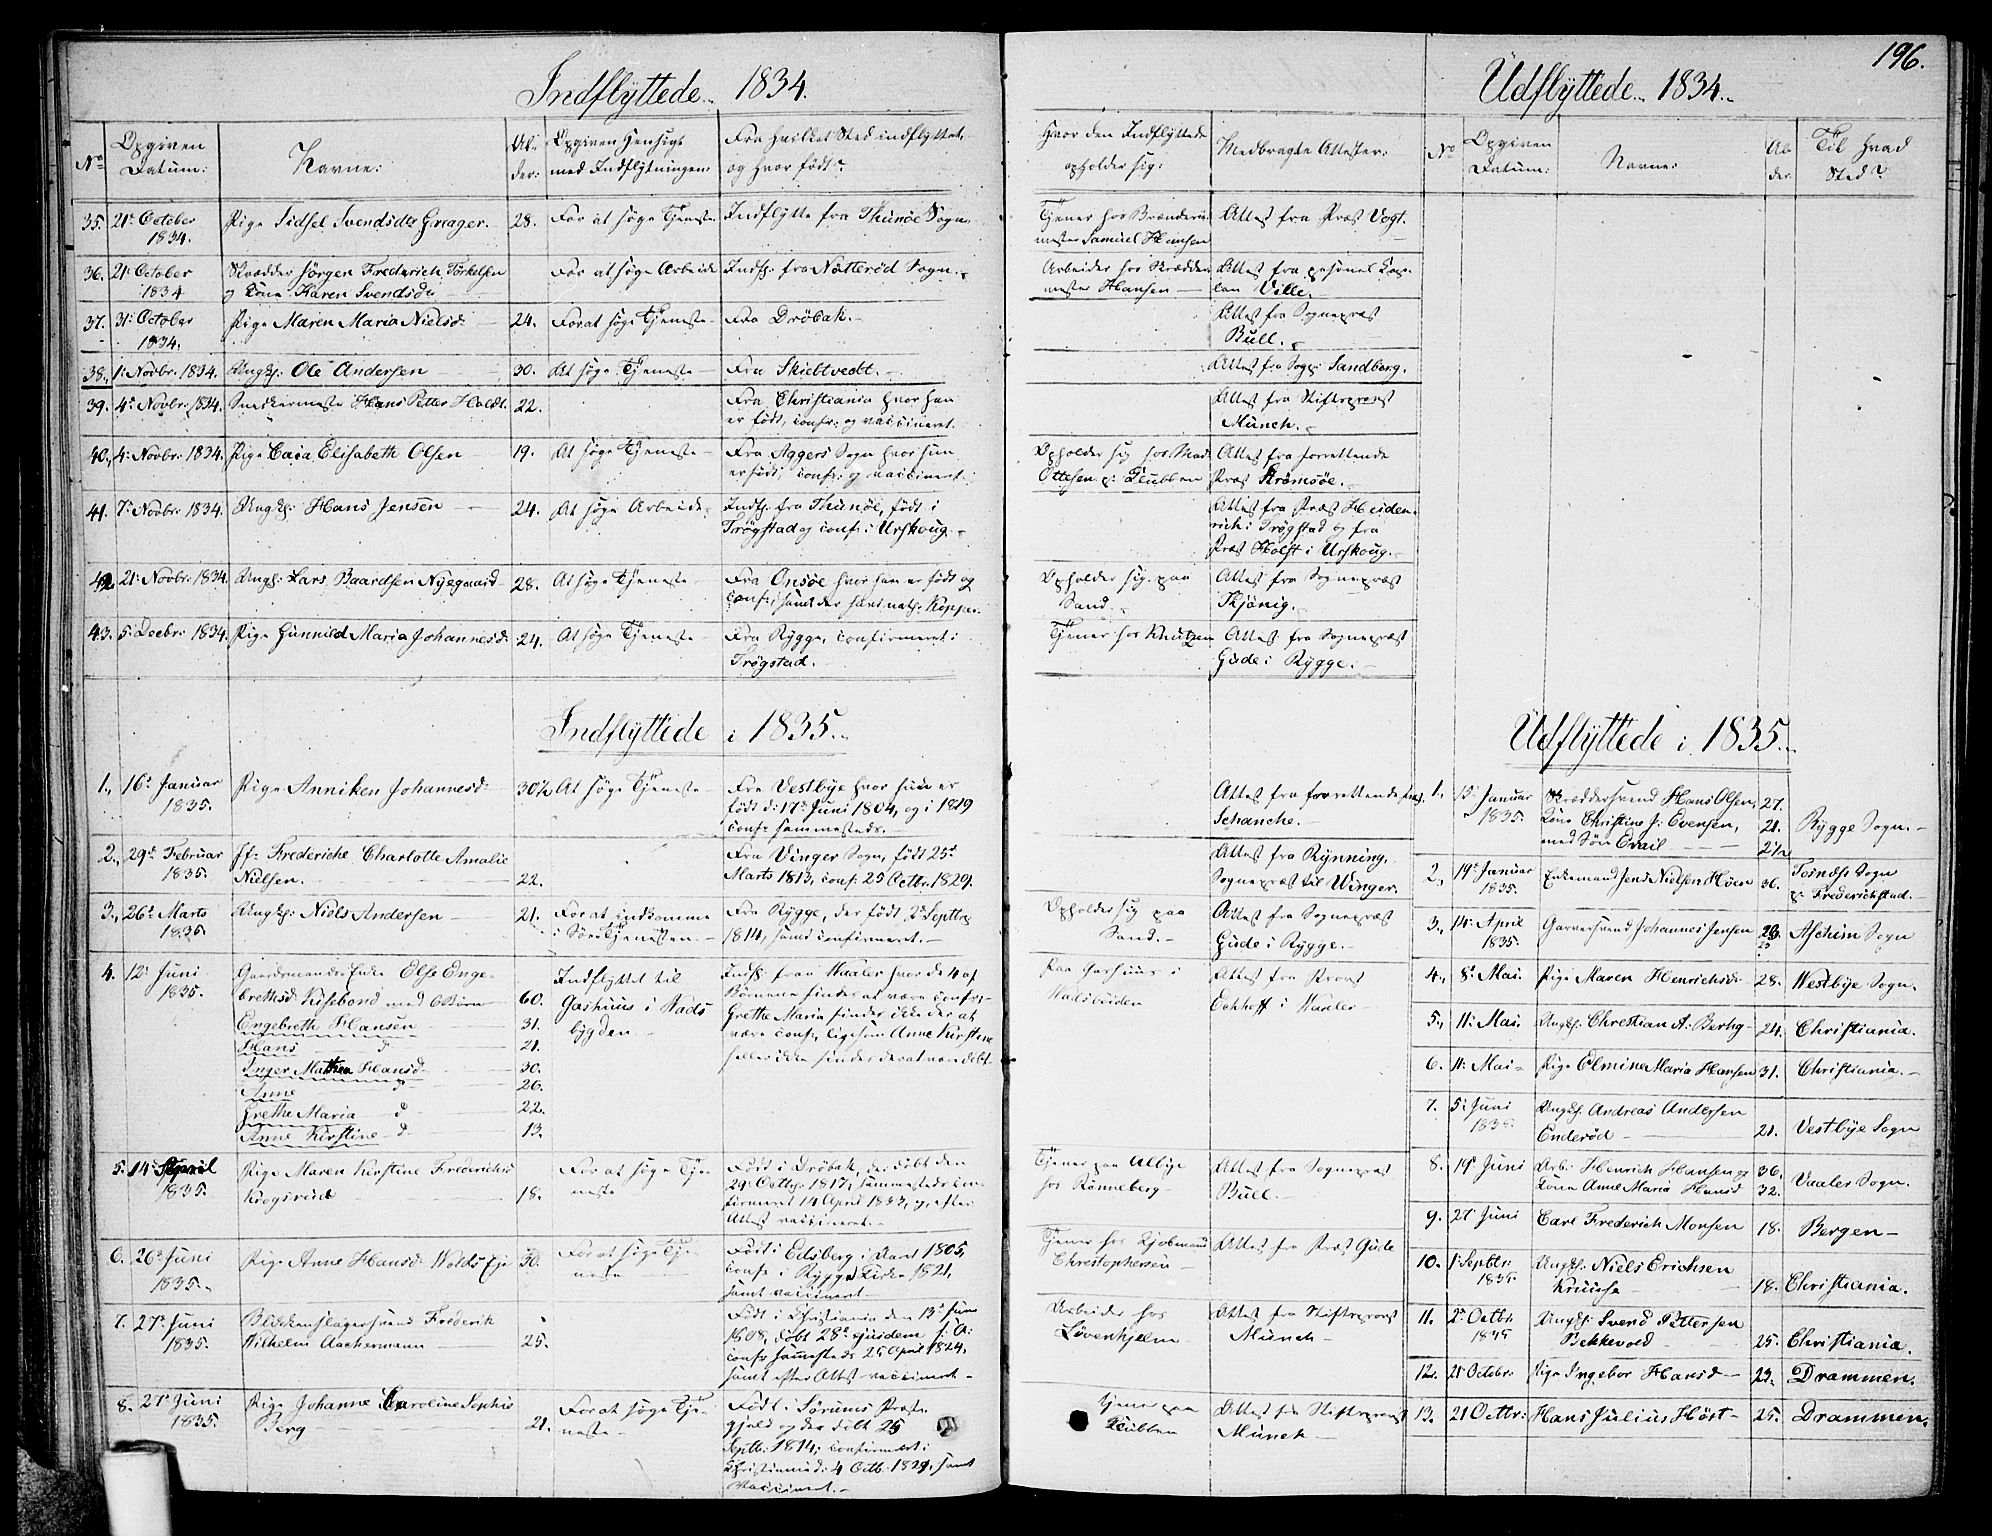 196.
Indflyttede 1834.
No
Opgiven Datum:
Navne:
Al-
der:
Opgiven Hensigt
med Indflytningen:
Fra hvilket Sted indflyttet,
og hvor født?
Hvor den Indflyttede
opholder sig:
Medbragte Attester:
35. 21de October 1834. Pige Sidsel Svendsdtr Graager. 28. For at søge Tjeneste Indflytte fra Thunøe Sogn.
Tjener hos Brænderie-
mester Samuel Hansen
Attest fra Præst Vogt.
36. 21: October 1834 Skrædder Jörgen Frederich Torkelsen
og Kone Karen Svendsdr
For at søge Arbeide Indfl: fra Nøtterød Sogn.
Arbeider hos Skrædder-
mester Hansen
Attest fra personel Cap-
lan Wille.
37. 31: October 1834. Pige Maren Maria Nielsd: 24. For at søge Tjeneste Fra Dröbak.
Attest fra Sognepræst
Bull.
38. 1: Novbr: 1834. Ungk: Ole Andersen 30. At søge Tjeneste Fra Skiebtvedt.
Attest fra Sogp: Sandberg.
39. 4: Novbr: 1834. Snedkermester Hans Petter Holdt. 22.
Fra Christiania hvor han
er født, conf: og vaccineret.
Attest fra Stiftsprovst
Münch.
40. 4: Novbr: 1834. Pige Caia Elisabeth Olsen 19. At søge Tjeneste
Fra Aggers Sogn hvor hun
er født, conf: og vaccineret.
Opholder sig hos Mad:
Ottesen p: Klubben
Attest fra forrettende
Præst Strömsöe.
41. 7: Novbr: 1834. Ungk: Hans Jensen 24. At søge Arbeide
Indfl: fra Thunöe, født i
Trögstad og conf: i Urskoug.
Attest fra Præst Heiden-
rich i Trögstad og fra
Præst Holst i Urskoug.
42. 21: Novbr: 1834. Ungk: Lars Baardsen Nyegaard 28. At søge Tjeneste
Fra Onsöe hvor han er født og
conf: samt der havt nat: Kopper.
Opholder sig paa
Sand.
Attest fra Sognepræst
43. 5: Decbr: 1834. Pige Gunnild Maria Johannesd: 24. At søge Tjeneste
Fra Rygge, confirmeret i
Trögstad.
Tjener hos Knutzen
Attest fra Sognepræst
Gude i Rygge.
Indflyttede i 1835.
1. 16: Januar 1835. Pige Anniken Johannesd: 30½ At søge Tjeneste
Fra Vestbye hvor hun er
født d: 17de Juni 1804, og i 1819
conf: sammesteds.
Attest fra forrettende Præst
Schanche.
2. 29de Februar 1835. Jf: Frederiche Charlotte Amalie
Nielsen. 22.
Fra Vinger Sogn, født 25de
Marts 1813, conf: 25 Octbr: 1829.
Attest fra Rynning,
Sognepræst til Winger.
3. 26de Marts 1835. Ungk: Niels Andersen 21. For at indkomme
i Søe Tjenesten.
Fra Rygge, der født 2de Septbr
1814, samt confirmeret.
Opholder sig paa
Sand.
Attest fra Sognepræst
Gude i Rygge.
4. 12: Juni 1835. Gaardmands Enke Else Enge-
brethsd: Kisebond med 6 Børn 60.
Engebreth Hansen 31.
Hans d 21.
Inger Mathea Hansd 30.
Anne d 26.
Grethe Maria d 22.
Anne Kirstine d 13.
Indflyttet til
Garhuus i Vads
bygden
Indfl: fra Waaler hvor de 4 af
Børnene findes at være confir:
Grethe Maria findes ikke der at
være conf: ligesom Anne Kirstine
heller ikke findes der at være døbt.
Paa Garhuus i
Attest fra Provst
Eckhoff i Waaler
5. 14: April 1835. Pige Maren Kirstine Frederichsd
Krogsrud 18.
For at søge Tje-
neste
Født i Dröbak, der døbt den
29: Octbr: 1817, sammesteds con-
firmeret 14 April 1833, og efter
Attest vaccineret.
Tjener paa Alby
hos Rönneberg
Attest fra Sognepræst
Bull.
6. 26de Juni 1835. Pige Anne Hansd: Wolds Eje 30. For at søge Tje-
neste
Født i Edsberg i Aaret 1805,
conf: i Rygge Kirke 1821,
samt vaccineret.
Tjener hos Kjøbmand
Christophersen
Attest fra Præst Gude
7. 27de Juni 1835. Blikkenslagersvend Frederik
Wilhelm Aachermann 25.
Født i Christiania den 13de Juni
1808, døbt 28de ejusdem
conf: sammesteds 25 April 1824,
samt efter Attest vaccineret.
Arbeider hos
Lövenhjelm
Attest fra Stiftsprovst
Münch
8. 27de Juni 1835. Pige Johanne Caroline Sophie
Berg 21.
For at søge Tje-
neste
Født i Sörums Præste-
gjeld og der døbt 25
Septb: 1814; confirmeret i
Christiania d: 4 Octb: 1829, samt
Vaccineret.
Tjener paa
Klubben
Attest fra Stiftsprovst
Münch
Udflyttede 1834.
No
Opgiven
Datum:
Navne:
Al-
der.
Til hvad
Sted?
Udflyttede i 1835.
1. 15: Januar 1835. Skræddersvend Hans Olsen, 27.
Kone Christine J: Evensen, 21.
med Søn Emil 2½
Rygge Sogn.
2. 19de Januar 1835. Enkemand Jens Nielsen Höen 36.
Torsnæs Sogn
p: Frederichstad.
3. 14: April 1835. Garversvend Johannes Jensen 26. Aschim Sogn
4. 8de Mai. Pige Maren Henrichsd: 28. Westbÿe Sogn.
5. 11: Mai. Ungk: Chrestian A: Berhg 24. Christiania.
6. 11: Mai Pige Elmine Maria Hansen 31. Christiania.
7. 5: Juni 1835. Ungk: Andreas Andersen
Enderöd 21. Vestbÿe Sogn
8. 19de Juni Arb: Henrich Hansen og 36.
Kone Anne Maria Hansd 32.
Vaaler Sogn.
9. 27 Juni Carl Frederich Monsen 18. Bergen
10. 1: Septbr: 1835 Ungk: Niels Erichsen
Knusse 18. Christiania.
11. 2de Octbr: 1835 Ungk: Svend Pettersen
Bekkevold 25. Christiania.
12. 21 Octobr: Pige Ingebor Hansd 23. Drammen.
13. 21 Octbr: Hans Julius Höst 25. Drammen.